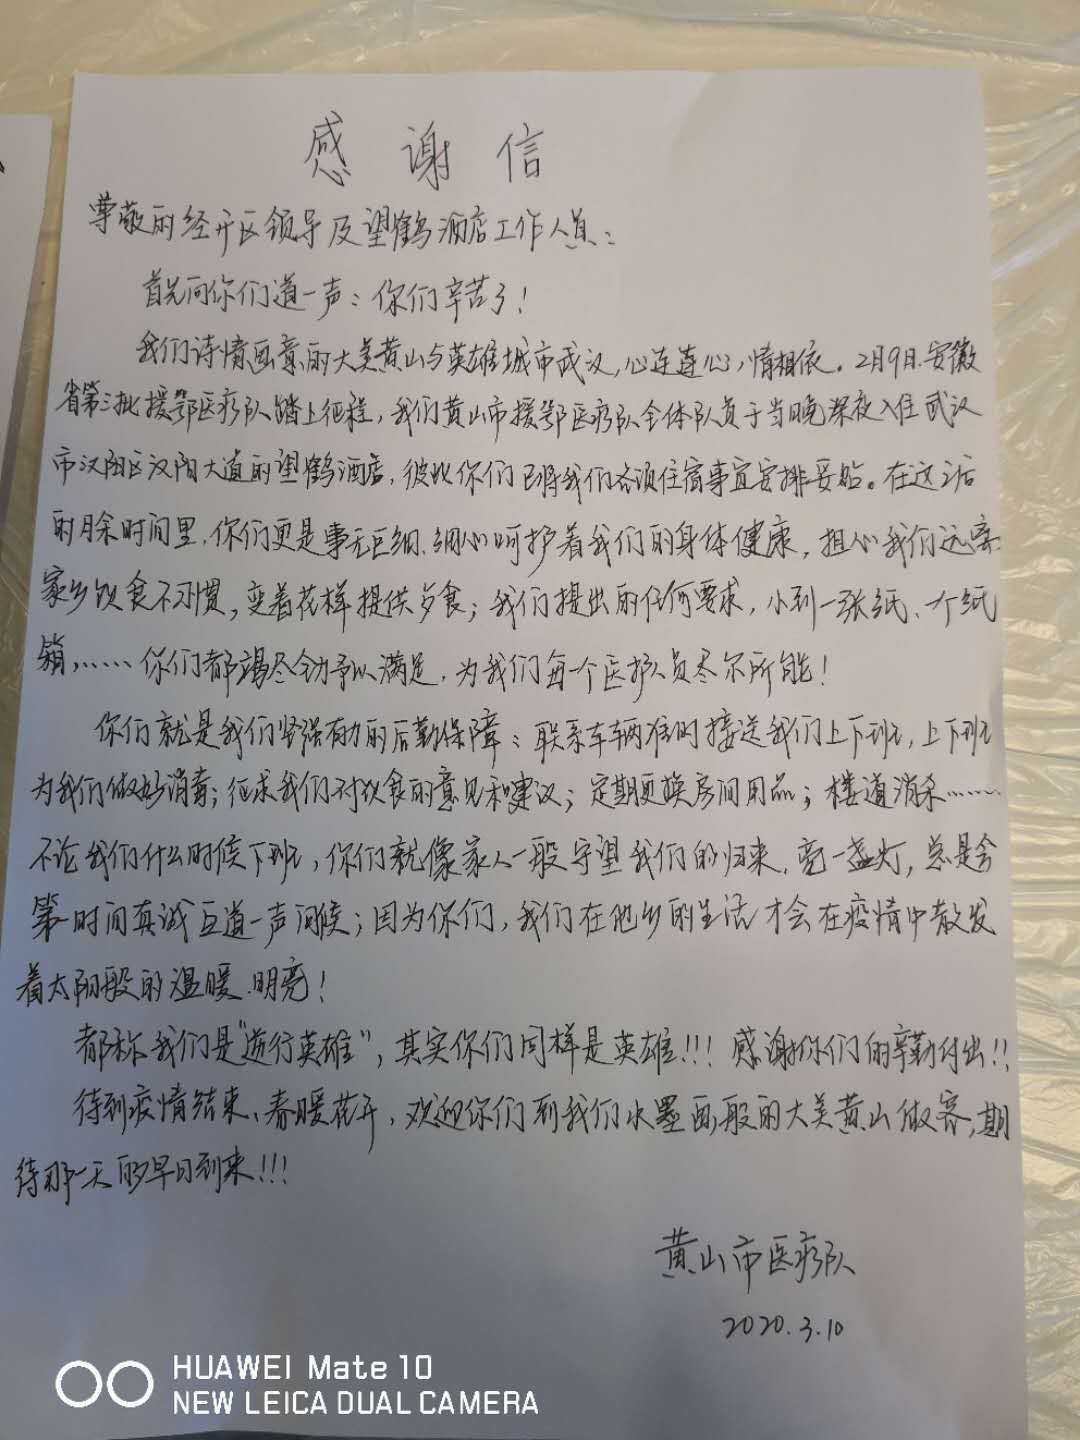 感谢信
尊敬的经开区领导及望鹤酒店工作人员：
首先向你们道一声：你们辛苦了！
我们诗情画意的大美黄山与英雄城市武汉，心连连心，情相依。2月9日、安徽
省第三批援鄂医疗队踏上征程，我们黄山市援鄂医疗队全体队员于当晚深夜入住武汉
市汉阳区汉阳大道的望鹤酒店，彼此你们已将我们各项住宿事宜安排妥贴。在这之后
的月余时间里，你们更是事无巨细、细心呵护着我们的身体健康，担心我们远离
家乡饮食不习惯，变着花样提供夕食；我们提出的任何要求，小到一张纸、一个纸
箱，……你们都竭尽全力予以满足，为我们每一个医护人员尽尔所能！
你们就是我们坚强有力的后勤保障：联系车辆准时接送我们上下班，上下班
为我们做好消毒；征求我们对饮食的意见和建议；定期更换房间用品；楼道消杀……
不论我们什么时候下班，你们就像家人一般守望我们的归来，亮一盏灯，总是会
第一时间真诚互道一声问候；因为你们，我们在他乡的生活才会在疫情中散发
着太阳般的温暖、明亮！
都称我们是“逆行英雄”，其实你们同样是英雄！！！感谢你们的辛勤付出！！
待到疫情结束、春暖花开，欢迎你们到我们水墨画般的大美黄山做客，期
待那一天的早日到来！！！
黄山市医疗队
2020.3.10
HUAWEI Mate 10
NEW LEICA DUAL CAMERA